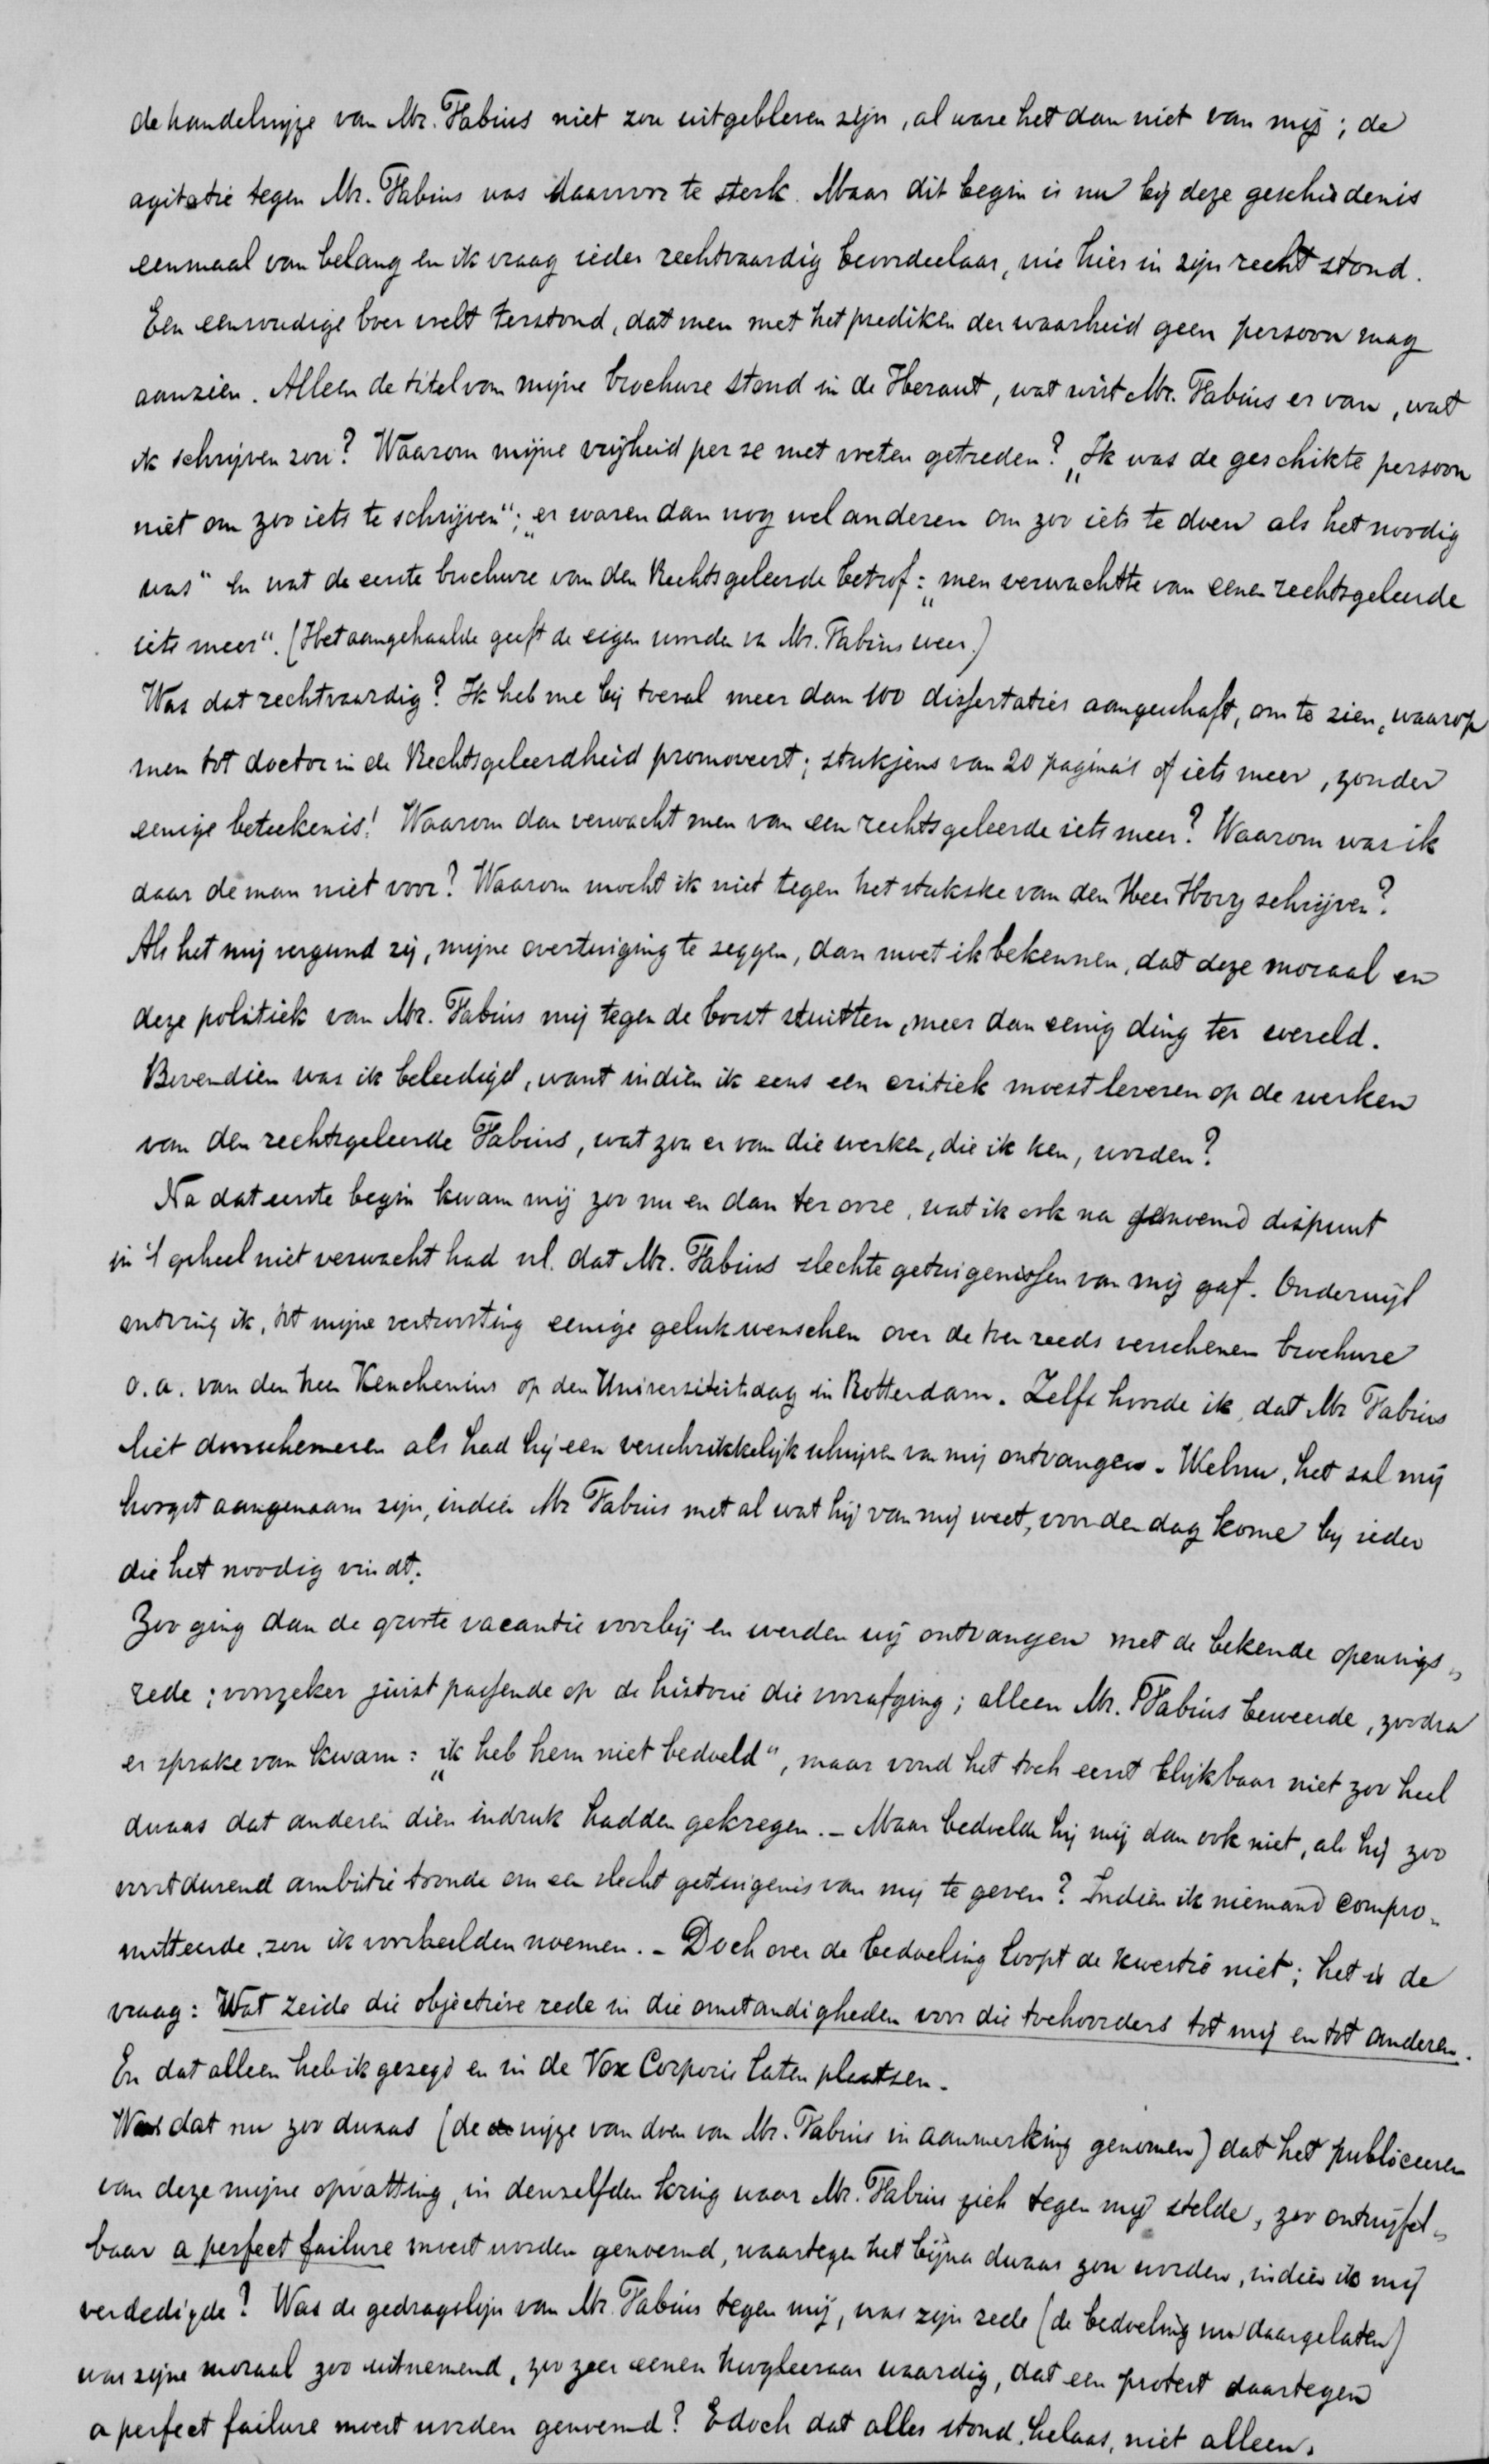 de handelwijze van Mr. Fabius niet zou uitgebleven zijn, al ware het dan niet van mij; de
agitatie tegen Mr. Fabius was daarvoor te sterk. Maar dit begin is nu bij deze geschiedenis
eenmaal van belang en ik vraag ieder rechtvaardig beoordeelaar, wie hier in zijn recht stond.
Een eenvoudige boer voelt terstond, dat men met het prediken der waarheid geen persoon mag
aanzien. Alleen de titel van mijne brochure stond in de Heraut, wat wist Mr. Fabius er van, wat
ik schrijven zou? Waarom mijne vrijheid per se met voeten getreden? „Ik was de geschikte persoon
niet om zoo iets te schrijven“; „er waren dan nog wel anderen om zoo iets te doen als het noodig
was“ En wat de eerste brochure van den Rechtsgeleerde betrof: „men verwachtte van eenen rechtsgeleerde
iets meer“. (Het aangehaalde geeft de eigen woorden van Mr. Fabius weer.)
Was dat rechtvaardig? Ik heb me bij toeval meer dan 100 dissertaties aangeschaft, om te zien, waarop
men tot doctor in de Rechtsgeleerdheid promoveert; stukjens van 20 pagina's of iets meer, zonder
eenige beteekenis! Waarom dan verwacht men van een rechtsgeleerde iets meer? Waarom was ik
daar de man niet voor? Waarom mocht ik niet tegen het stukske van den Heer Hovy schrijven?
Als het mij vergund zij, mijne overtuiging te zeggen, dan moet ik bekennen, dat deze moraal en
deze politiek van Mr. Fabius mij tegen de borst stuitten, meer dan eenig ding ter wereld.
Bovendien was ik beleedigd, want indien ik eens een critiek moest leveren op de werken
van den rechtsgeleerde Fabius, wat zou er van die werken, die ik ken, worden?
Na dat eerste begin kwam mij zoo nu en dan ter oore, wat ik ook na genoemd dispuut
in 't geheel niet verwacht had nl. dat Mr. Fabius slechte getuigenissen van mij gaf. Onderwijl
ontving ik, tot mijne vertroosting eenige gelukwenschen over de toen reeds verschenen brochure
o.a. van den heer Keuchenius op den Universiteitsdag in Rotterdam. Zelfs hoorde ik, dat Mr Fabius
liet doorschemeren als had hij een verschrikkelijk schrijven van mij ontvangen. Welnu, het zal mij
hoogst aangenaam zijn, indien Mr Fabius met al wat hij van mij weet, voor den dag kome bij ieder
die het noodig vindt.
Zoo ging dan de groote vacantie voorbij en werden wij ontvangen met de bekende openings„
rede; voorzeker juist passende op de historie die voorafging; alleen Mr. Fabius beweerde, zoodra
er sprake van kwam: „ik heb hem niet bedoeld“, maar vond het toch eerst blijkbaar niet zoo heel
dwaas dat anderen dien indruk hadden gekregen. – Maar bedoelde hij mij dan ook niet, als hij zoo
voortdurend ambitie toonde om een slecht getuigenis van mij te geven? Indien ik niemand compro„
mitteerde, zou ik voorbeelden noemen. – Doch over de bedoeling loopt de kwestie niet; het is de
vraag: Wat zeide die objectieve rede in die omstandigheden voor die toehoorders tot mij en tot anderen.
En dat alleen heb ik gezegd en in de Vox Corporis laten plaatsen.
Was dat nu zoo dwaas (de wijze van doen van Mr. Fabius in aanmerking genomen) dat het publiceeren
van deze mijne opvatting, in denzelfden kring waar Mr. Fabius zich tegen mij stelde, zoo ontwijfel„
baar a perfect failure moest worden genoemd, waartegen het bijna dwaas zou worden, indien ik mij
verdedigde? Was de gedragslijn van Mr. Fabius tegen mij, was zijn rede (de bedoeling nu daargelaten)
was zijne moraal zoo uitnemend, zoo zeer eenen hoogleeraar waardig, dat een protest daartegen
a perfect failure moest worden genoemd? Edoch dat alles stond, helaas, niet alleen.